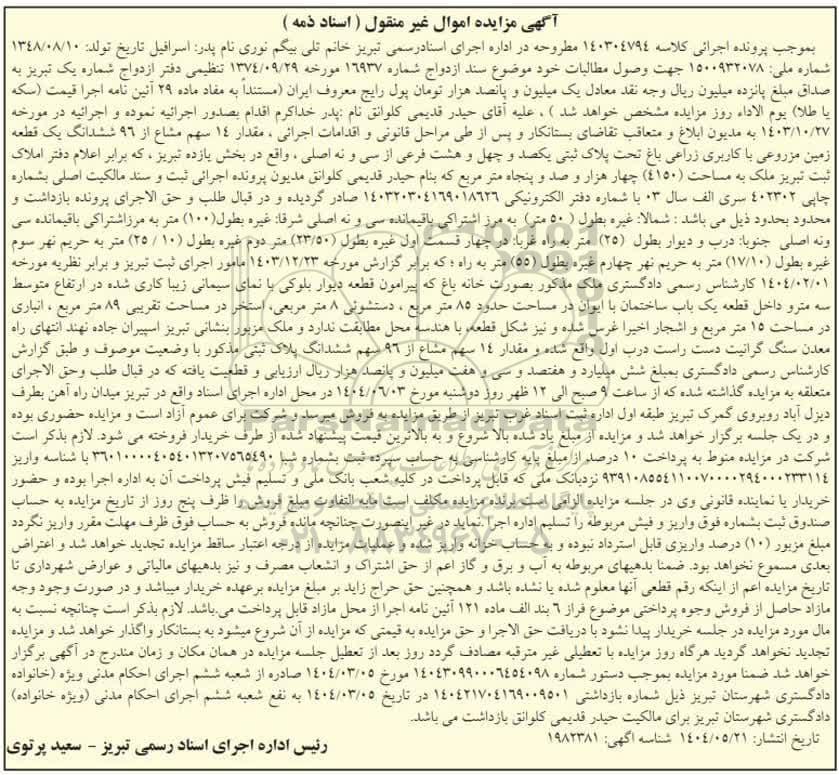 آگهی مزایده اموال غیر منقول ( اسناد ذمه )
بموجب پرونده اجرائی کلاسه ۱۴۰۳۰۴۷۹۴ مطروحه در اداره اجرای اسنادرسمی تبریز خانم تلی بیگم نوری نام پدر: اسرافیل تاریخ تولد: ۱۳۴۸/۰۸/۱۰
شماره ملی: ۱۵۰۰۹۳۲۰۷۸ جهت وصول مطالبات خود موضوع سند ازدواج شماره ۱۶۹۳۷ مورخه ۱۳۷۴/۰۹/۲۹ تنظیمی دفتر ازدواج شماره یک تبریز به
صداق مبلغ پانزده میلیون ریال وجه نقد معادل یک میلیون و پانصد هزار تومان پول رایج معروف ایران (مستنداً به مفاد ماده ۲۹ آئین نامه اجرا قیمت (سکه
یا طلا) یوم الاداء روز مزایده مشخص خواهد شد ) ، علیه آقای حیدر قدیمی کلوانق نام :پدر خداکرم اقدام بصدور اجرائیه نموده و اجرائیه در مورخه
۱۴۰۳/۱۰/۲۷ به مدیون ابلاغ و متعاقب تقاضای بستانکار و پس از طی مراحل قانونی و اقدامات اجرائی ، مقدار ۱۴ سهم مشاع از ۹۶ ششدانگ یک قطعه
زمین مزروعی با کاربری زراعی باغ تحت پلاک ثبتی یکصد و چهل و هشت فرعی از سی و نه اصلی ، واقع در بخش یازده تبریز ، که برابر اعلام دفتر املاک
ثبت تبریز ملک به مساحت (۴۱۵۰) چهار هزار و صد و پنجاه متر مربع که بنام حیدر قدیمی کلوانق مدیون پرونده اجرائی ثبت و سند مالکیت اصلی بشماره
چاپی ۴۰۲۳۰۲ سری الف سال ۰۳ با شماره دفتر الکترونیکی ۱۴۰۳۲۰۳۰۴۱۶۹۰۱۸۶۲۶ صادر گردیده و در قبال طلب و حق الاجرای پرونده بازداشت و
محدود بحدود ذیل می باشد : شمالا: غیره بطول ( ۵۰ متر) به مرز اشتراکی باقیمانده سی و نه اصلی شرقا: غیره بطول(۱۰۰) متر به مرزاشتراکی باقیمانده سی
ونه اصلی جنوبا: درب و دیوار بطول (۲۵) متر به راه غربا: در چهار قسمت اول غیره بطول (۲۳/۵۰) متر دوم غیره بطول (۱۰ / ۲۵) متر به حریم نهر سوم
غیره بطول (۱۷/۱۰) متر به حریم نهر چهارم غیره بطول (۵۵) متر به راه ؛ که برابر گزارش مورخه ۱۴۰۳/۱۲/۲۳ مامور اجرای ثبت تبریز و برابر نظریه مورخه
۱۴۰۴/۰۲/۰۱ کارشناس رسمی دادگستری ملک مذکور بصورت خانه باغ که پیرامون قطعه دیوار بلوکی با نمای سیمانی زیبا کاری شده در ارتفاع متوسط
سه مترو داخل قطعه یک باب ساختمان با ایوان در مساحت حدود ۸۵ متر مربع ، دستشوئی ۸ متر مربعی، استخر در مساحت تقریبی ۸۹ متر مربع ، انباری
در مساحت ۱۵ متر مربع و اشجار اخیرا غرس شده و نیز شکل قطعه، با هندسه محل مطابقت ندارد و ملک مزبور بنشانی تبریز اسپیران جاده نهند انتهای راه
معدن سنگ گرانیت دست راست درب اول واقع شده و مقدار ۱۴ سهم مشاع از ۹۶ سهم ششدانگ پلاک ثبتی مذکور با وضعیت موصوف و طبق گزارش
کارشناس رسمی دادگستری بمبلغ شش میلیارد و هفتصد و سی و هفت میلیون و پانصد هزار ریال ارزیابی و قطعیت یافته که در قبال طلب وحق الاجرای
متعلقه به مزایده گذاشته شده که از ساعت ۹ صبح الی ۱۲ ظهر روز دوشنبه مورخ ۱۴۰۴/۰۶/۰۳ در محل اداره اجرای اسناد واقع در تبریز میدان راه آهن بطرف
دیزل آباد روبروی گمرک تبریز طبقه اول اداره ثبت اسناد غرب تبریز از طریق مزایده به فروش میرسد و شرکت برای عموم آزاد است و مزایده حضوری بوده
و در یک جلسه برگزار خواهد شد و مزایده از مبلغ یاد شده بالا شروع و به بالاترین قیمت پیشنهاد شده از طرف خریدار فروخته می شود. لازم بذکر است
شرکت در مزایده منوط به پرداخت ۱۰ درصد ازمبلغ پایه کارشناسی به حساب سپرده ثبت بشماره شبا ۳۶۰۱۰۰۰۰۴۰۵۴۰۱۳۲۰۷۵۶۵۴۹۰ با شناسه واریز
۹۳۹۱۰۸۵۵۴۱۱۰۰۷۰۰۰۰۲۹۴۰۰۰۲۳۳۱۱۴ نزدبانک ملی که قابل پرداخت در کلیه شعب بانک ملی و تسلیم فیش پرداخت آن به اداره اجرا بوده و حضور
خریدار یا نماینده قانونی وی در جلسه مزایده الزامی است.برنده مزایده مکلف است مابه التفاوت مبلغ فروش را ظرف پنج روز از تاریخ مزایده به حساب
صندوق ثبت بشماره فوق واریز و فیش مربوطه را تسلیم اداره اجرا نماید در غیر اینصورت چنانچه مانده فروش به حساب فوق ظرف مهلت مقرر واریز نگردد
مبلغ مزبور (۱۰) درصد واریزی قابل استرداد نبوده و به حساب خزانه واریز شده و عملیات مزایده از درجه اعتبار ساقط مزایده تجدید خواهد شد و اعتراض
بعدی مسموع نخواهد بود. ضمنا بدهیهای مربوطه به آب و برق و گاز اعم از حق اشتراک و انشعاب مصرف و نیز بدهیهای مالیاتی و عوارض شهرداری تا
تاریخ مزایده اعم از اینکه رقم قطعی آنها معلوم شده یا نشده باشد و همچنین حق حراج زاید بر مبلغ مزایده برعهده خریدار میباشد و در صورت وجود وجه
مازاد حاصل از فروش وجوه پرداختی موضوع فراز ۶ بند الف ماده ۱۲۱ آئین نامه اجرا از محل مازاد قابل پرداخت می.باشد. لازم بذکر است چنانچه نسبت به
مال مورد مزایده در جلسه خریدار پیدا نشود با دریافت حق الاجرا و حق مزایده به قیمتی که مزایده از آن شروع میشود به بستانکار واگذار خواهد شد و مزایده
تجدید نخواهد گردید هرگاه روز مزایده با تعطیلی غیر مترقبه مصادف گردد روز بعد از تعطیل جلسه مزایده در همان مکان و زمان مندرج در آگهی برگزار
خواهد شد ضمنا مورد مزایده بموجب دستور شماره ۱۴۰۴۳۰۹۹۰۰۰۶۴۵۴۰۹۸ مورخ ۱۴۰۴/۰۳/۰۵ صادره از شعبه ششم اجرای احکام مدنی ویژه (خانواده
دادگستری شهرستان تبریز ذیل شماره بازداشتی ۱۴۰۴۲۱۷۰۴۱۶۹۰۰۹۵۰۱ در تاریخ ۱۴۰۴/۰۳/۰۵ به نفع شعبه ششم اجرای احکام مدنی (ویژه خانواده)
دادگستری شهرستان تبریز برای مالکیت حیدر قدیمی کلوانق بازداشت می باشد.
تاریخ انتشار: ۱۴۰۴/۰۵/۲۱ شناسه آگهی: ۱۹۸۲۳۸۱
رئیس اداره اجرای اسناد رسمی تبریز - سعید پرتوی
ParsNamadData
۰۲۱-۸۸۳۴۹۶۷۰-۵